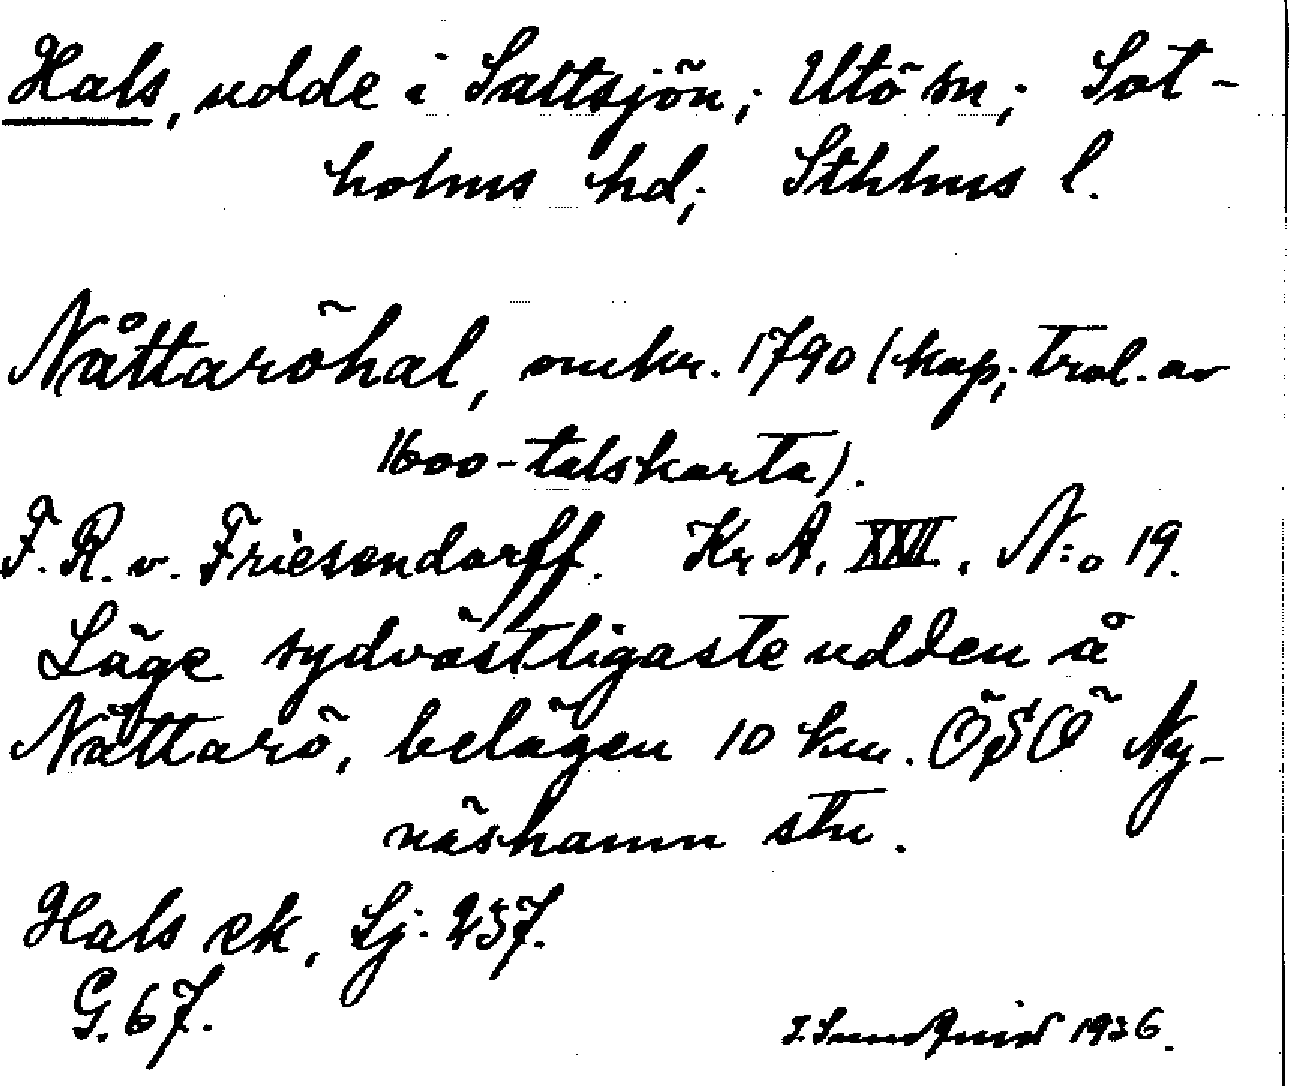 Hals, udde i Saltsjön; Utö sn; Sot-
holms hd; Sthlms l.
Nåttaröhal, omkr. 1790 (kop; trol. av
1600-talskarta).
F. R. v. Friesendorff. Kr A. XXII. N:o 19.
Läge sydvästligaste udden å
Nåttarö, belägen 10 km. ÖSÖ Ny-
näshamn stn.
Hals ek, Sj. 257.
G. 67.
I. Lundquist 1936.